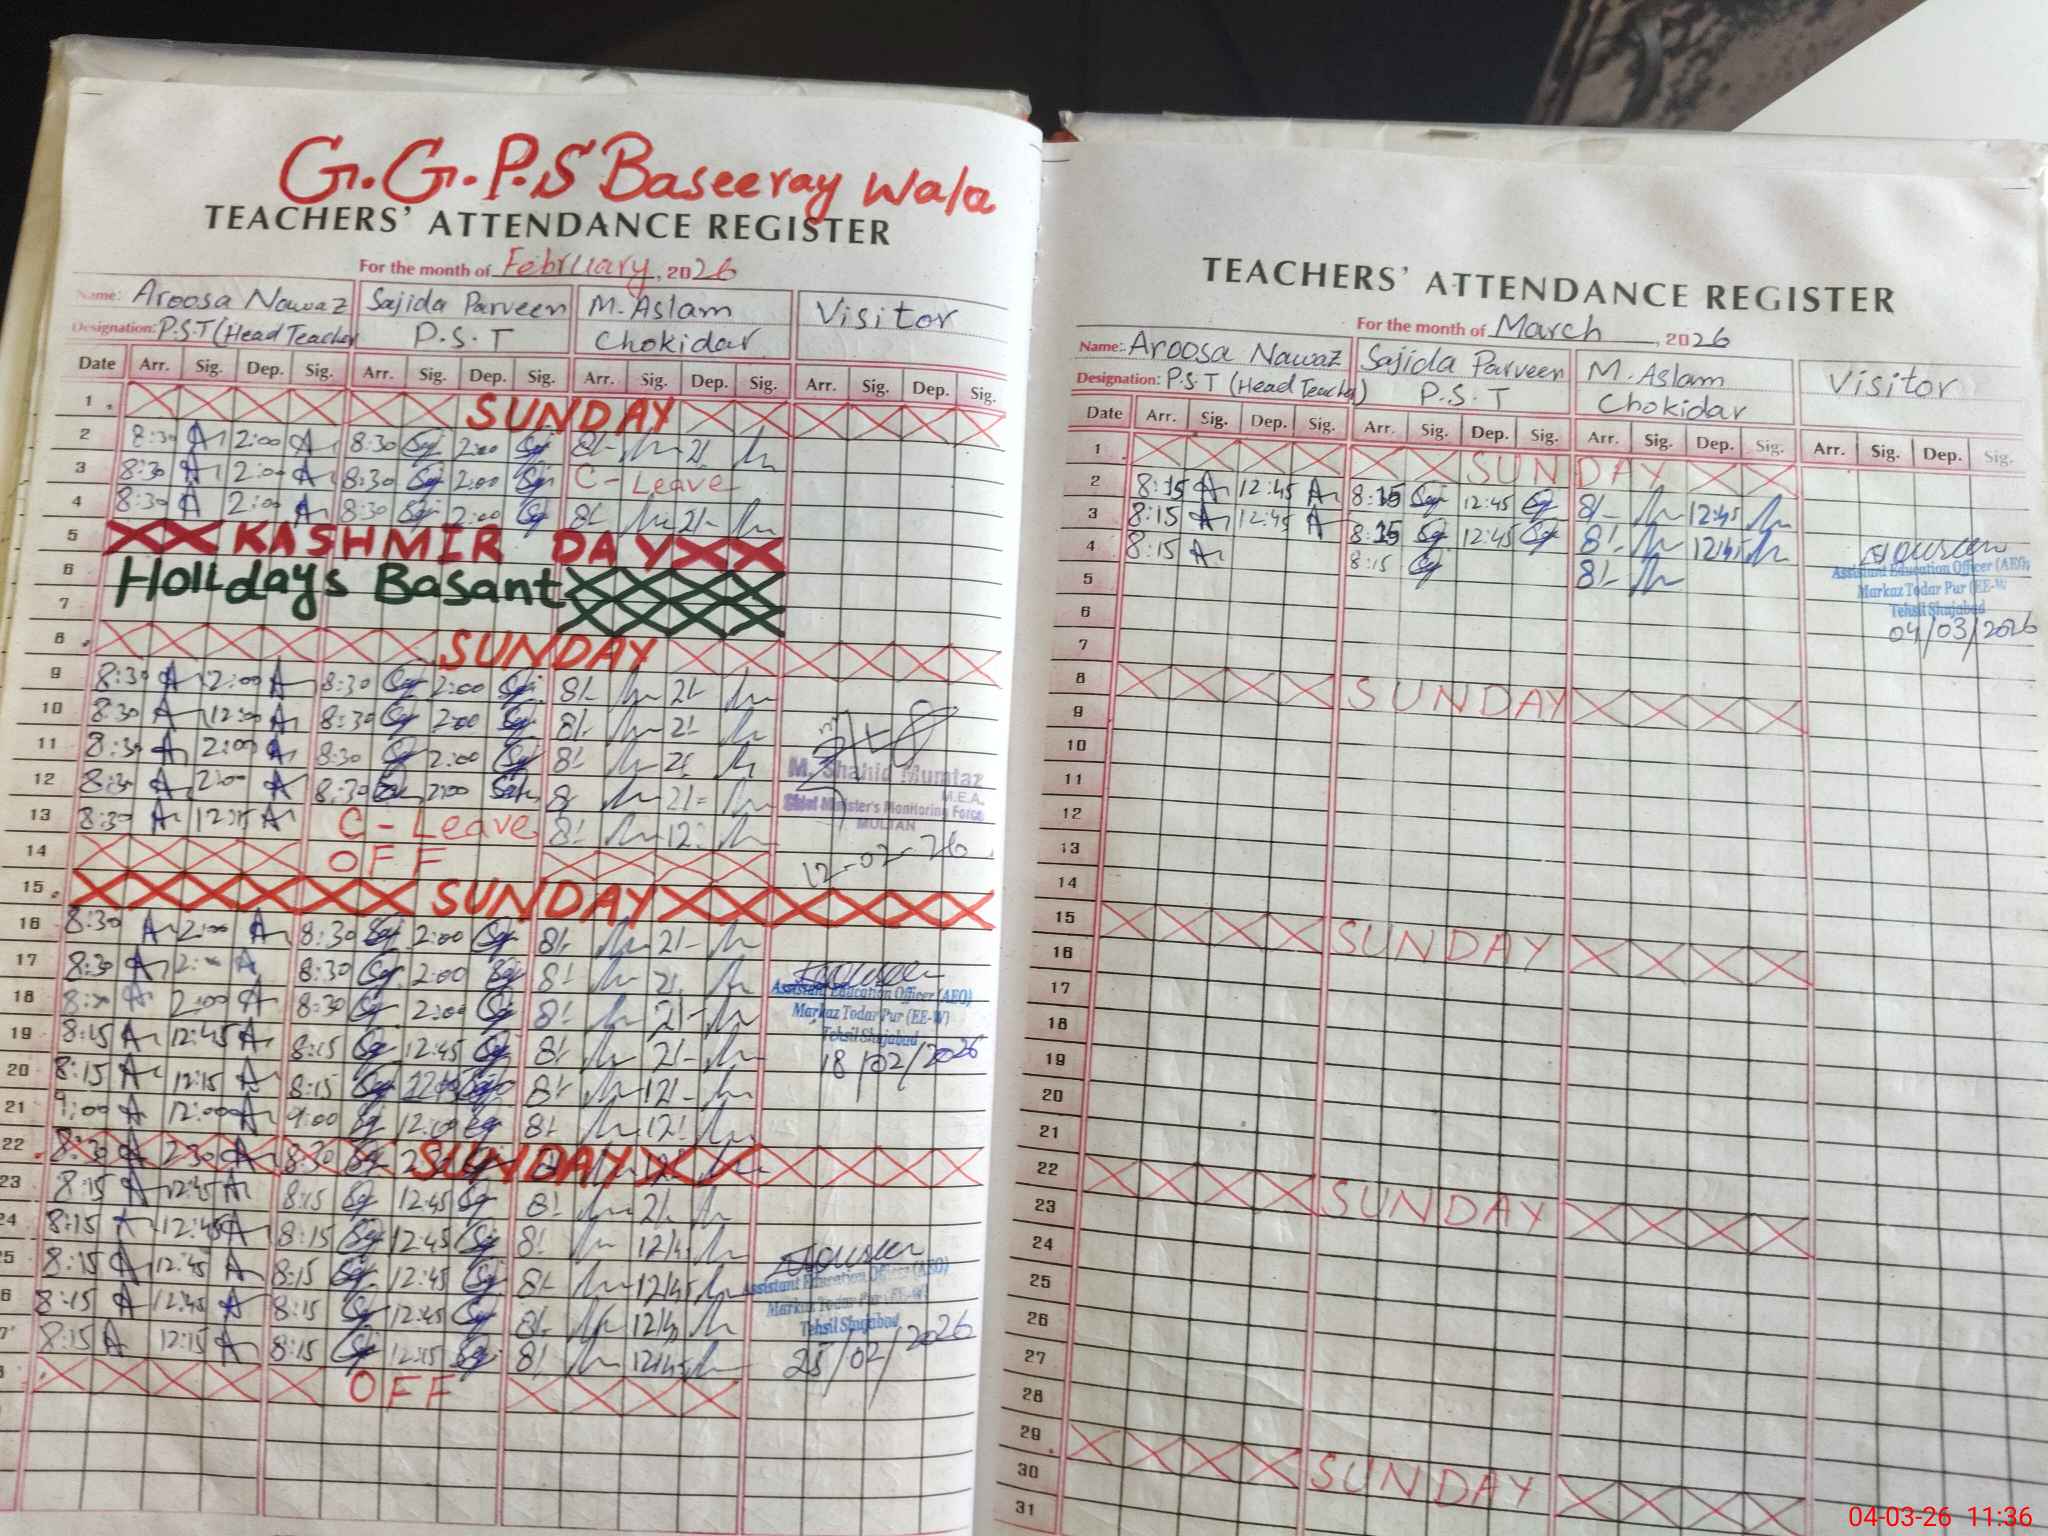 G.G.P.S Baseeray Wala
TEACHERS' ATTENDANCE REGISTER
For the month of February, 2026
Name: Aroosa Nawaz Sajida Parveen M. Aslam Visitor
Designation: P.S.T (Head Teacher P.S.T Chokidar
Date Arr. Sig. Dep. Sig. Arr. Sig. Dep. Sig. Arr. Sig. Dep. Sig. Arr. Sig. Dep. Sig.
1 SUNDAY
2 8:30 2:00 8:30 2:00 8/- 2/.
3 8:30 2:00 8:30 2:00 C-Leave
4 8:30 2:00 8:30 2:00 8/- 2/-
5 KASHMIR DAY
6 Holidays Basant
7
8 SUNDAY
9 8:30 2:00 8:30 2:00 8/- 2/-
10 8:30 8:30 2:00 8/- 2/-
11 8:30 2:00 8:30 2:00 8/- 2/-
12 8:30 2:00 8:30 2:00 8/- 2/-
M. Shahid Mumtaz
M.E.A.
Chief Minister's Monitoring Force
MULTAN
13 8:30 12:15 C-Leave 8/- 12:
12-02-26
14 OFF
15 SUNDAY
16 8:30 2:00 8:30 2:00 8/- 2/-
17 8:30 8:30 2:00 8/- 2/.
18 8:30 2:00 8:30 2:00 8/- 2/-
Assistant Education Officer (AEO)
Markaz Todar Pur (EE-W)
Tehsil Shujabad
18/02/2026
19 8:15 12:45 8:15 12:45 8/- 2/-
20 8:15 12:15 8:15 8/- 12/-
21 9:00 12:00 9:00 12:00 8/- 12/.
22 8:30 2:30 8:30 SUNDAY
23 8:15 12:45 8:15 12:45 8/- 2/.
24 8:15 12:45 8:15 12:45 8/- 12/45
25 8:15 12:45 8:15 12:45 8/- 12/45
6 8:15 12:45 8:15 12:45 8/-
7 8:15 12:15 8:15 12:15 8/- 12:45
Assistant Education Officer (AEO)
Markaz Todar Pur (EE-W)
Tehsil Shujabad
25/02/2026
OFF
TEACHERS' ATTENDANCE REGISTER
For the month of March, 2026
Name: Aroosa Nawaz Sajida Parveen M. Aslam Visitor
Designation: P.S.T (Head Teacher) P.S.T Chokidar
Date Arr. Sig. Dep. Sig. Arr. Sig. Dep. Sig. Arr. Sig. Dep. Sig. Arr. Sig. Dep. Sig.
1 SUNDAY
2 8:15 12:45 8:15 12:45 8/- 12:45
3 8:15 12:45 8:15 12:45 8/- 12:45
4 8:15 8:15 8/-
Assistant Education Officer (AEO)
Markaz Todar Pur (EE-W
Tehsil Shujabad
04/03/2026
5
6
7
8 SUNDAY
9
10
11
12
13
14
15 SUNDAY
16
17
18
19
20
21
22 SUNDAY
23
24
25
26
27
28
29 SUNDAY
30
31
04-03-26 11:36